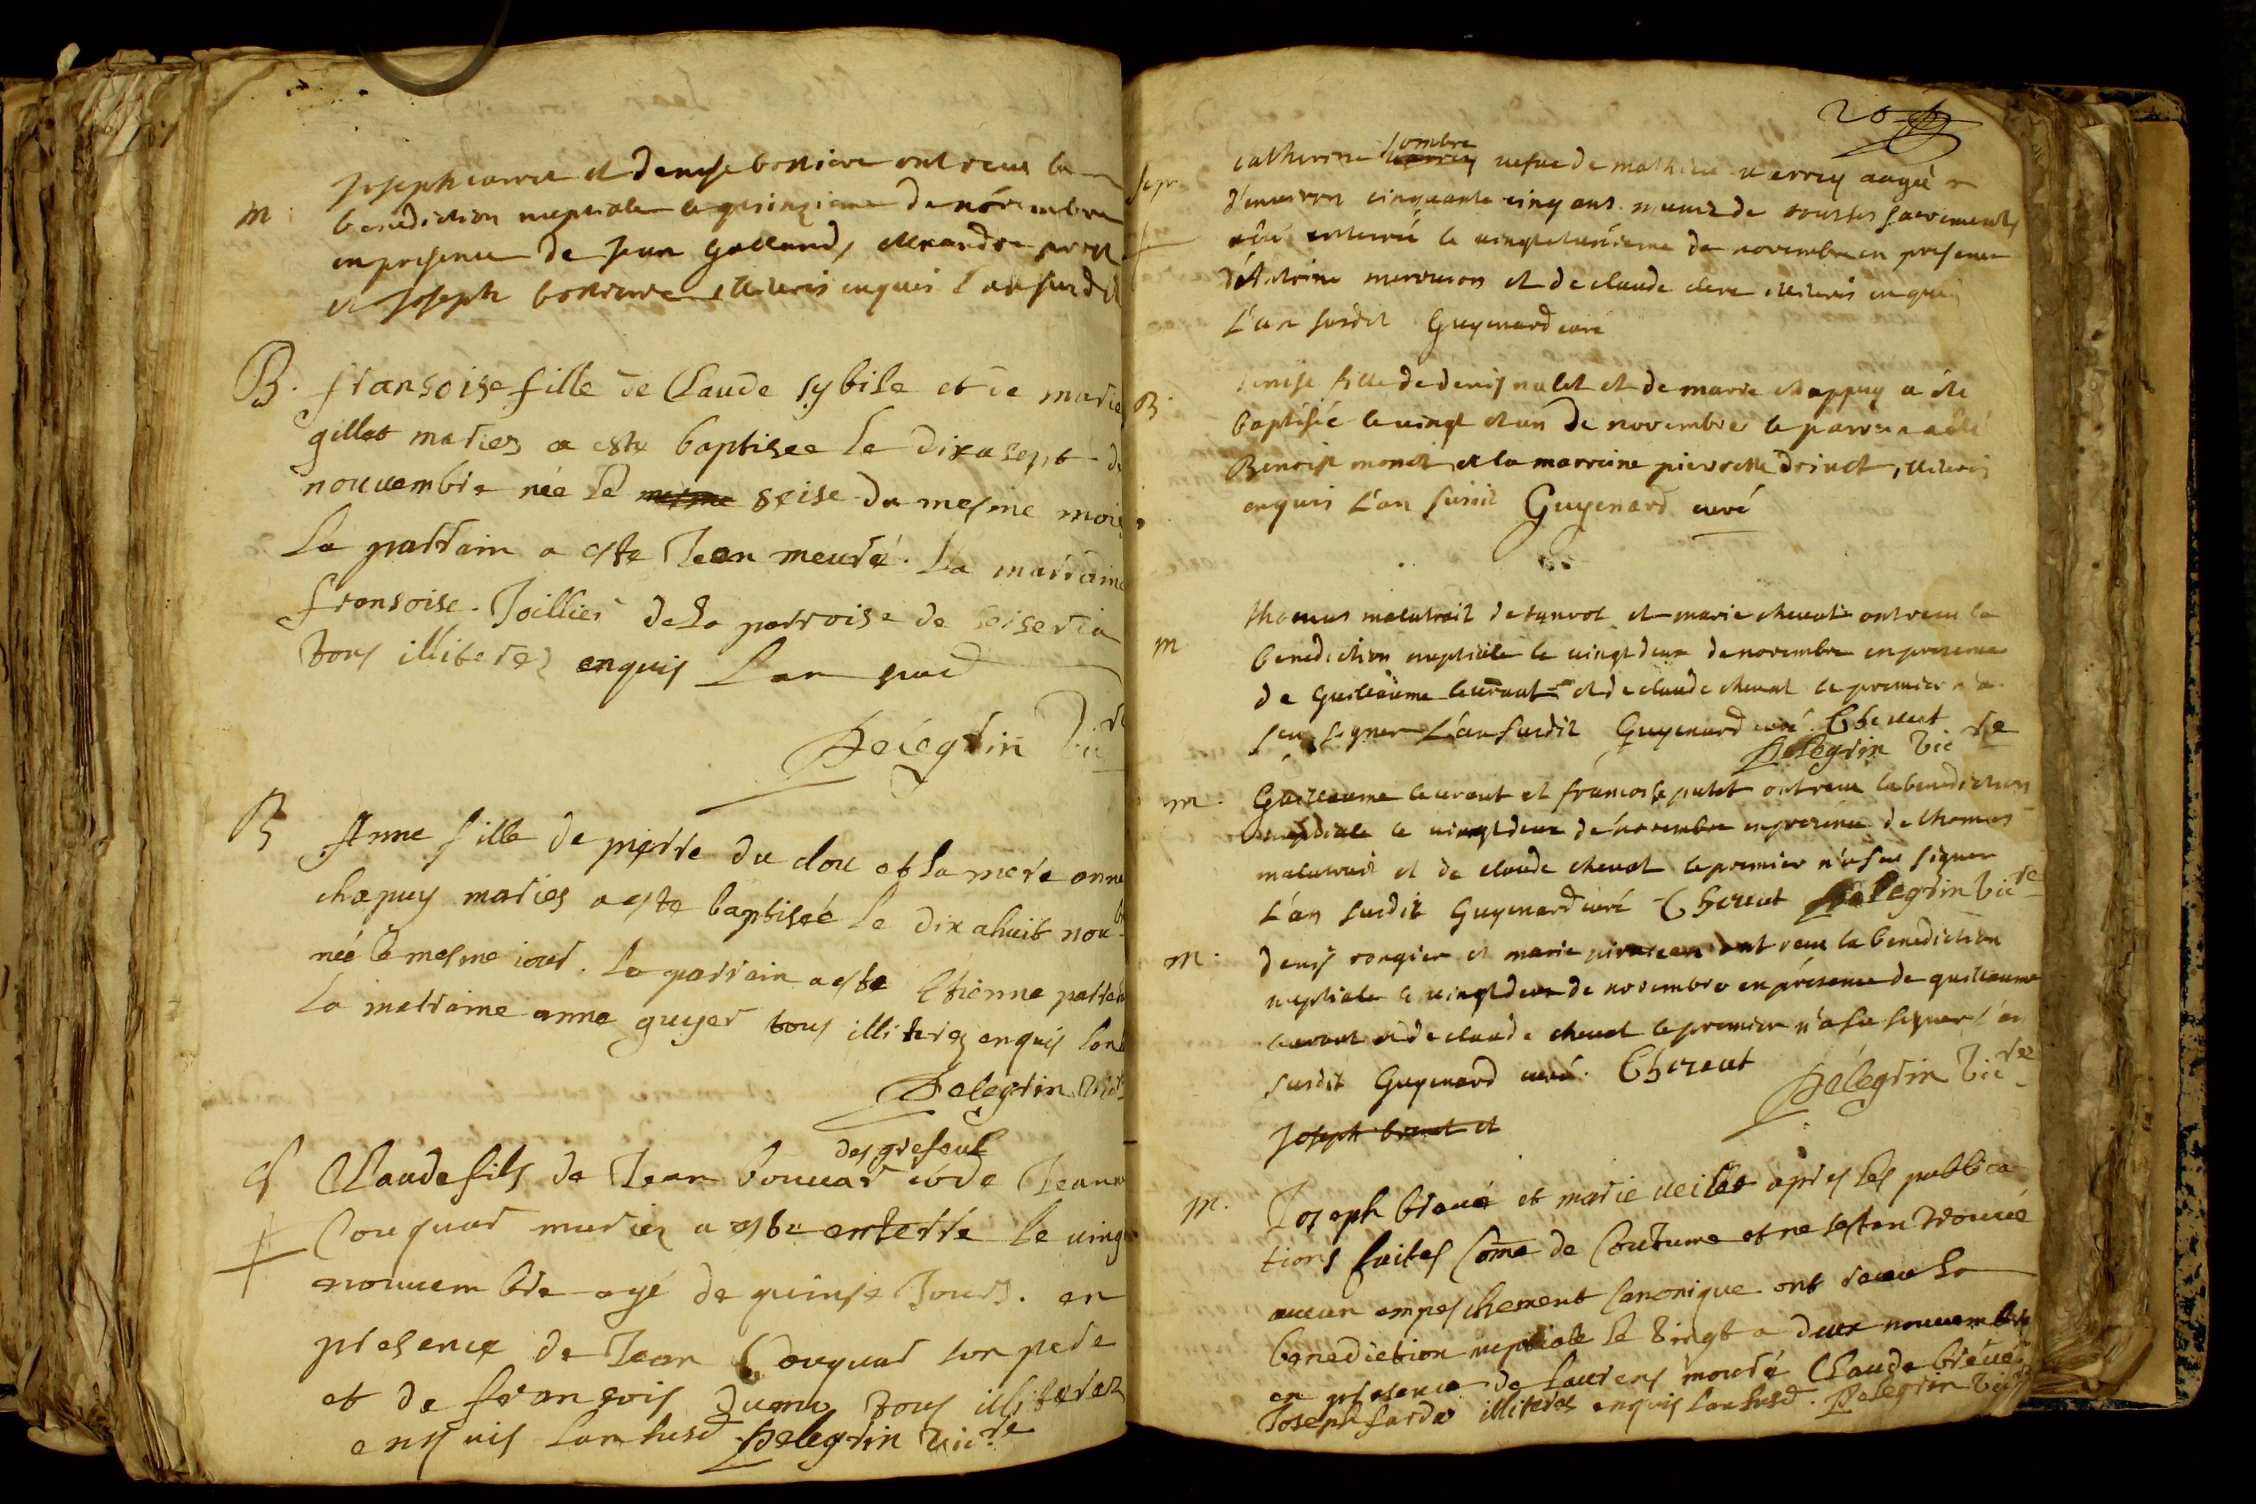 Joseph et denise boniere ont receu la
m benediction nuptiale le quinzieme de novembre
en presence de Jean Galland, alexandre
et Joseph boniere, illiteris enquis l'an susdit
B. fransoise fille de Claude sybile et de marie
gillet maries a este baptisee le dixasept de
nouuembre née le mesme seise du mesme mois
Le parrain a este Jean meuré. La marraine
fransoise Joillier de la parroise de
tous illiterez enquis Lan susd
Pelegrin Vic re
B Anne fille de pierre du clou et la mere anne
chapuy maries a este baptiseé le dixahuit nou b
née le mesme iour. le parrain a este Etienne
la marraine anne guyer tous illitrez enquis lan
Pelegrin Vic
des grefeul
Claude fils de Jean Couuar de Jeanne
Couguar mariez a este enterré le uingt
nouuembre agé de quinse Jours. en
presence de Jean Couguar son pere
et de françois Dumu tous illiterez
enquis lan susd Pelegrin Vic re
20
sombre
Sepr catherine uefue de mathieu uerrey aagée
d'enuiron cinquante cinq ans munie de tous ses sacrements
a été enterrée le uingt et unieme de novembre en presence
d'Antoine mercieron et de claude clere illiteris enquis
L'an susdit Guyenard curé
B. denise fille de denis nalet et de marie chappuy a été
baptisée le uingt et un de novembre le parrein a été
Benoist monet et la marreine pierrette drinet, illiteris
enquis L'an susdit Guyenard curé
m Thomas malatrait de et marie cheuat ont receu la
benediction nuptiale le uingt deux de novembre en presence
de Guilleaume leuraut et de claude cheuat le premier n'a
seu signer L'an susdit Guyenard curé Cheuat
Pelegrin Vic re
m. Guilleaume leuraut et francoise putet ont receu la benediction
nuptiale le uingt deux de novembre en presence de thomas
malatrait et de claude cheuat le premier n'a seu signer
L'an susdit Guyenard curé Cheuat Pelegrin Vic re
m. denis rongier et marie ont receu la benediction
nuptiale le uingt deux de novembre en présence de guilleaume
leuraut et de claude cheuat le premier n'a seu signer l'an
susdit Guyenard curé. Cheuat Pelegrin Vic re
Joseph et
m. Joseph breué et marie ueillet apres les publica
tions faites Come de Coutume et ne sestan trouué
aucun empeschement Canonique ont receu la
benediction nuptiale le Vingt a deux nouuembre
en presence de Laurens mouré Claude breué
Joseph farde illiteres enquis lan susd. Pelegrin Vic